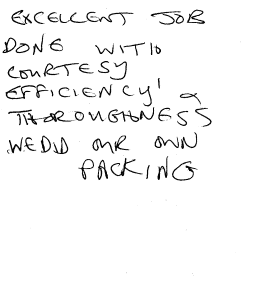 EXCELLENT JOB
DONE WITH
COURTESY
EFFICIENCY &
THOROUGHNESS
WE DID OUR OWN
PACKING